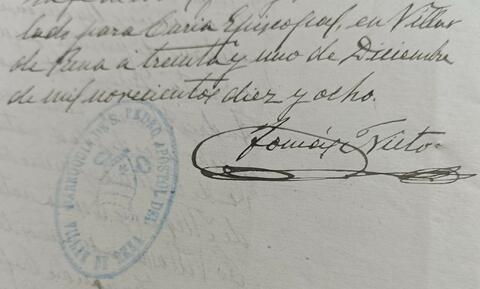 lado para Curia Episcopal, en Villar
de Rena a treinta y uno de Diciembre
de mil novecientos diez y ocho.
Tomás Nieto
PARROQUIA DE S. PEDRO APOSTOL DEL